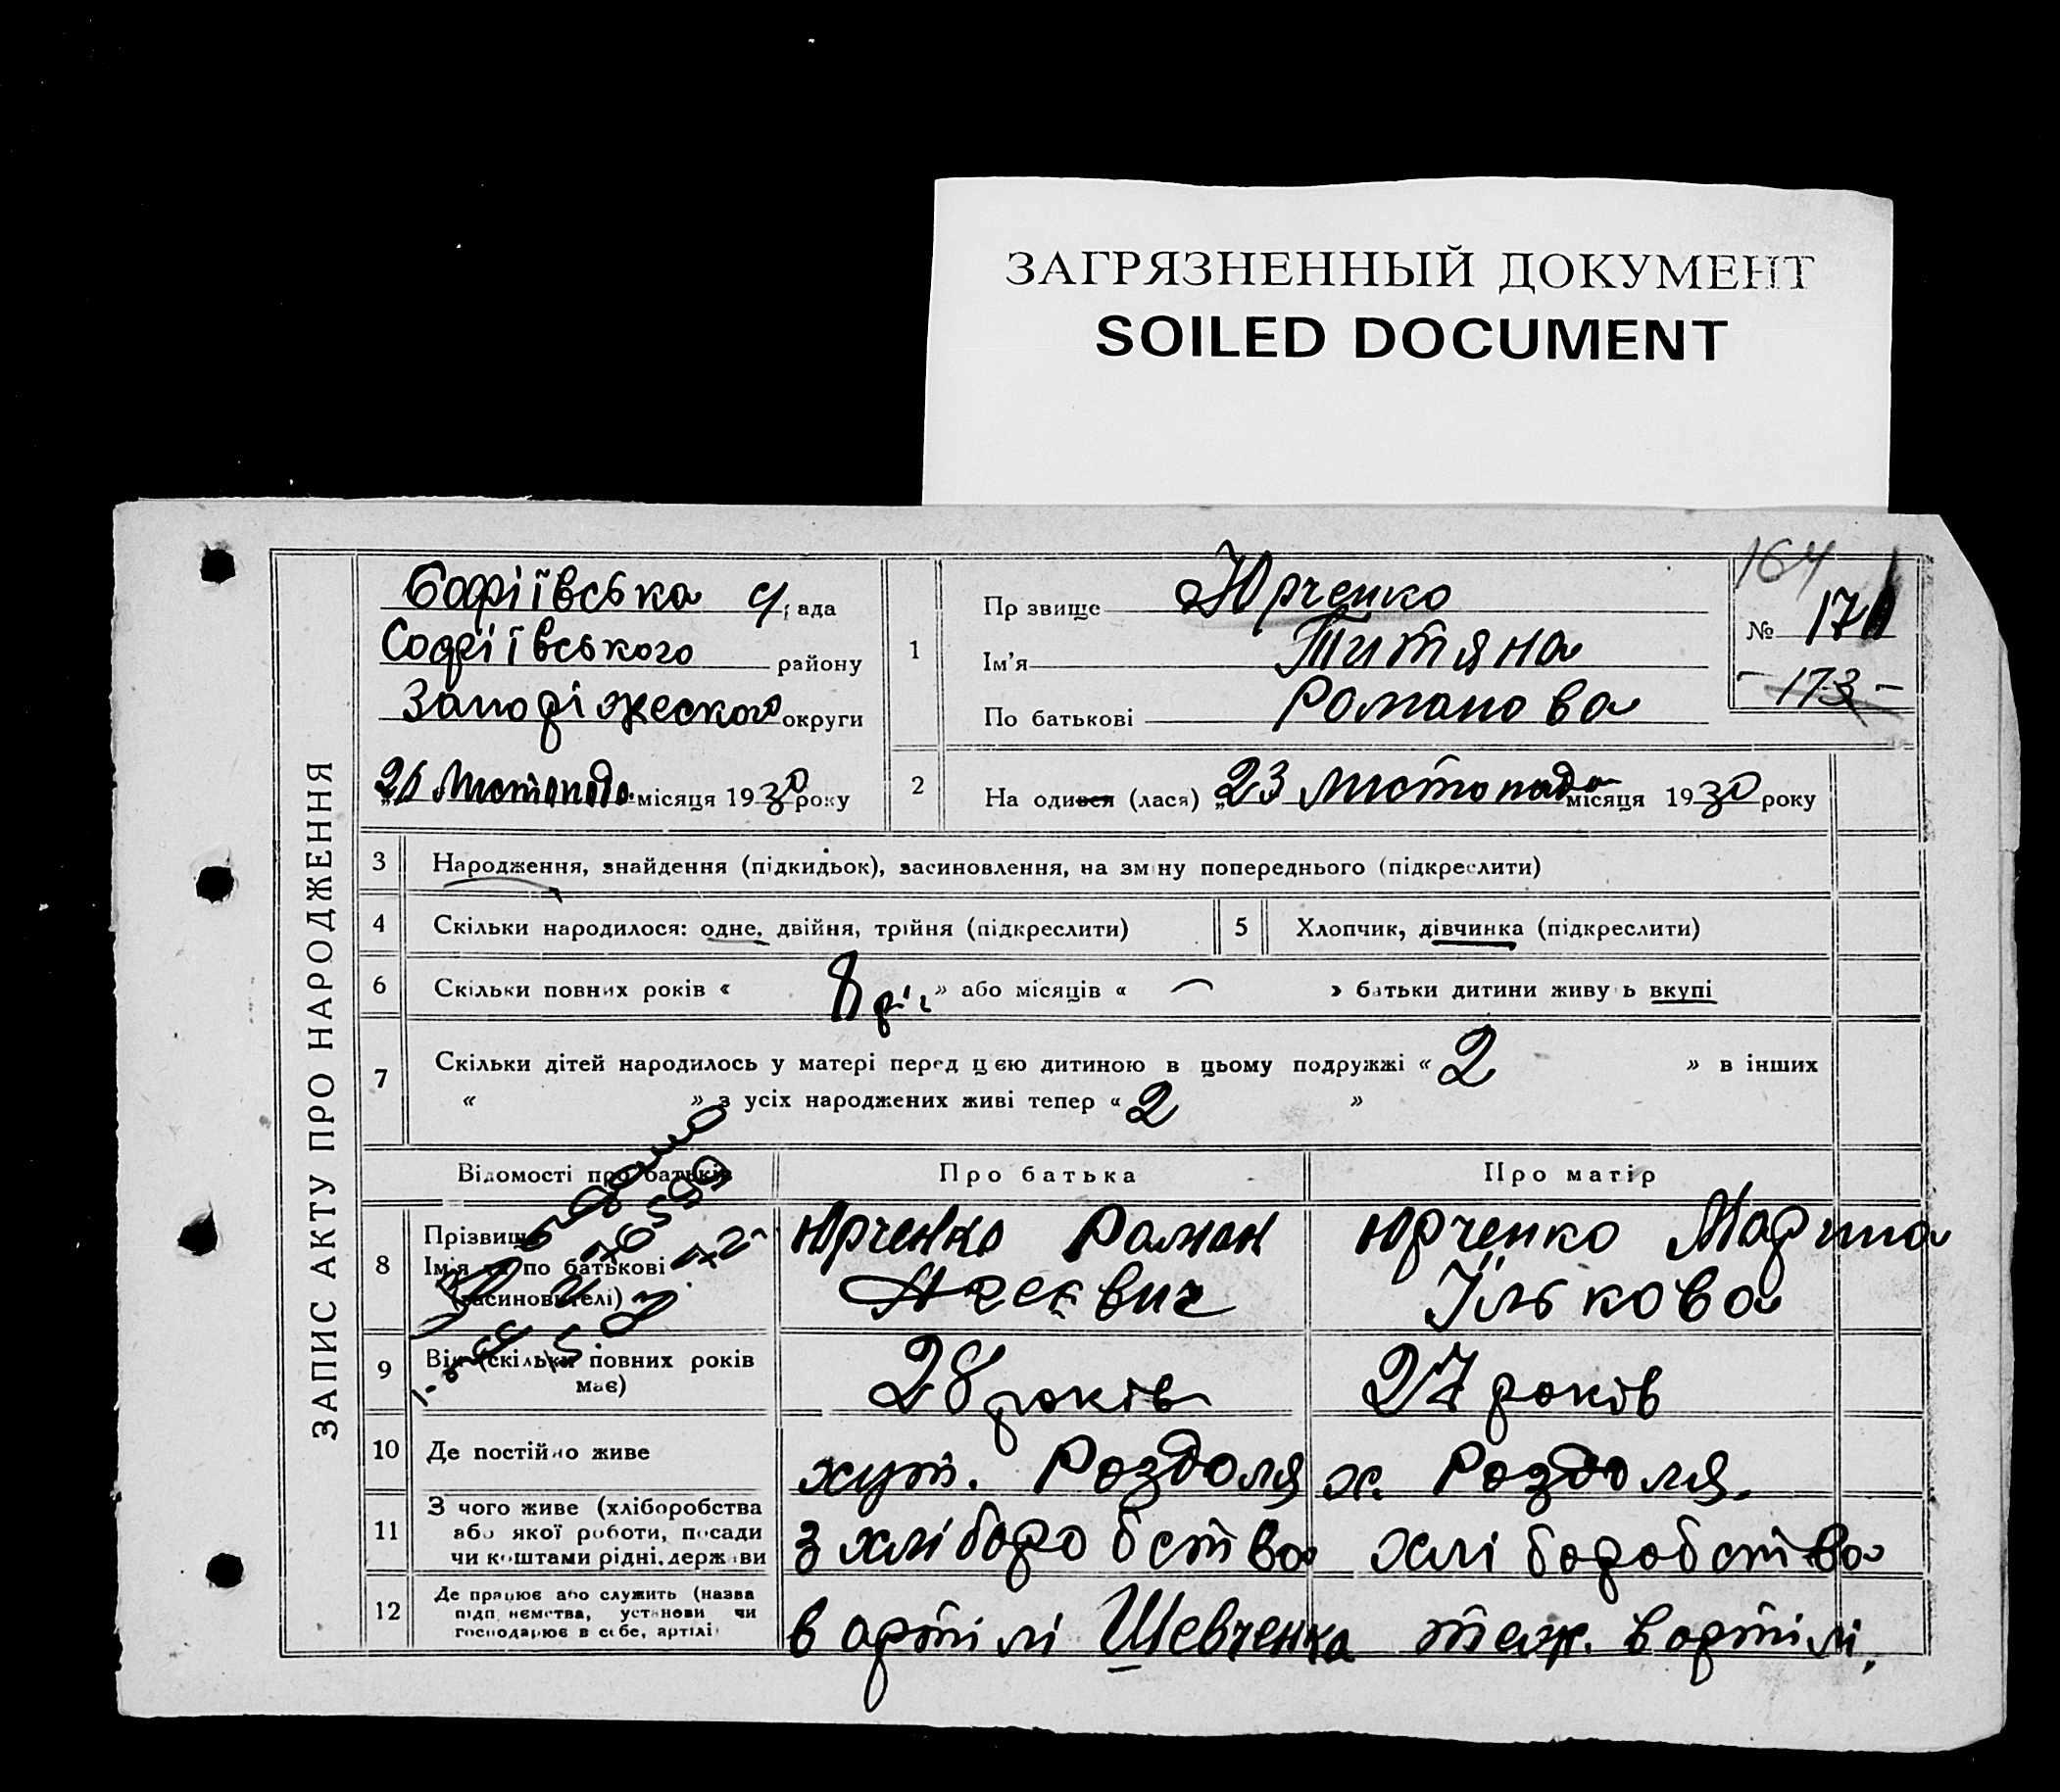 ЗАГРЯЗНЕННЫЙ ДОКУМЕНТ
SOILED DOCUMENT
ЗАПИС АКТУ ПРО НАРОДЖЕННЯ
Софіївська с/рада
Софіївського району
Запоріжеского округи
місяця 1930 року
1
Прізвище Юрченко
Ім'я Титяна
По батькові Романова
164
№ 171
- 173 -
2 На одився (лася) „23 листопада місяця 1930 року
3 Народження, знайдення (підкидьок), засиновлення, на зміну попереднього (підкреслити)
4 Скільки народилося: одне, двійня, трійня (підкреслити)
5 Хлопчик, дівчинка (підкреслити)
6 Скільки повних років « 8 » або місяців « — » батьки дитини живуть вкупі
7 Скільки дітей народилось у матері перед цією дитиною в цьому подружжі « 2 » в інших
« » з усіх народжених живі тепер « 2 »
Відомості про батьків
Про батька
Про матір
8 Прізвище
Ім'я та по батькові
(засиновителі)
Юрченко Роман
Юрченко Марина
Ількова
9 Вік (скільки повних років
має)
28 років
27 років
10 Де постійно живе
хут. Роздоля
х. Роздоля.
11 З чого живе (хліборобства
або якої роботи, посади
чи коштами рідні, держави
з хліборобства
хліборобства
12 Де працює або служить (назва
підприємства, установи чи
господарює в себе, артілі)
в артілі Шевченка
теж. в артілі.